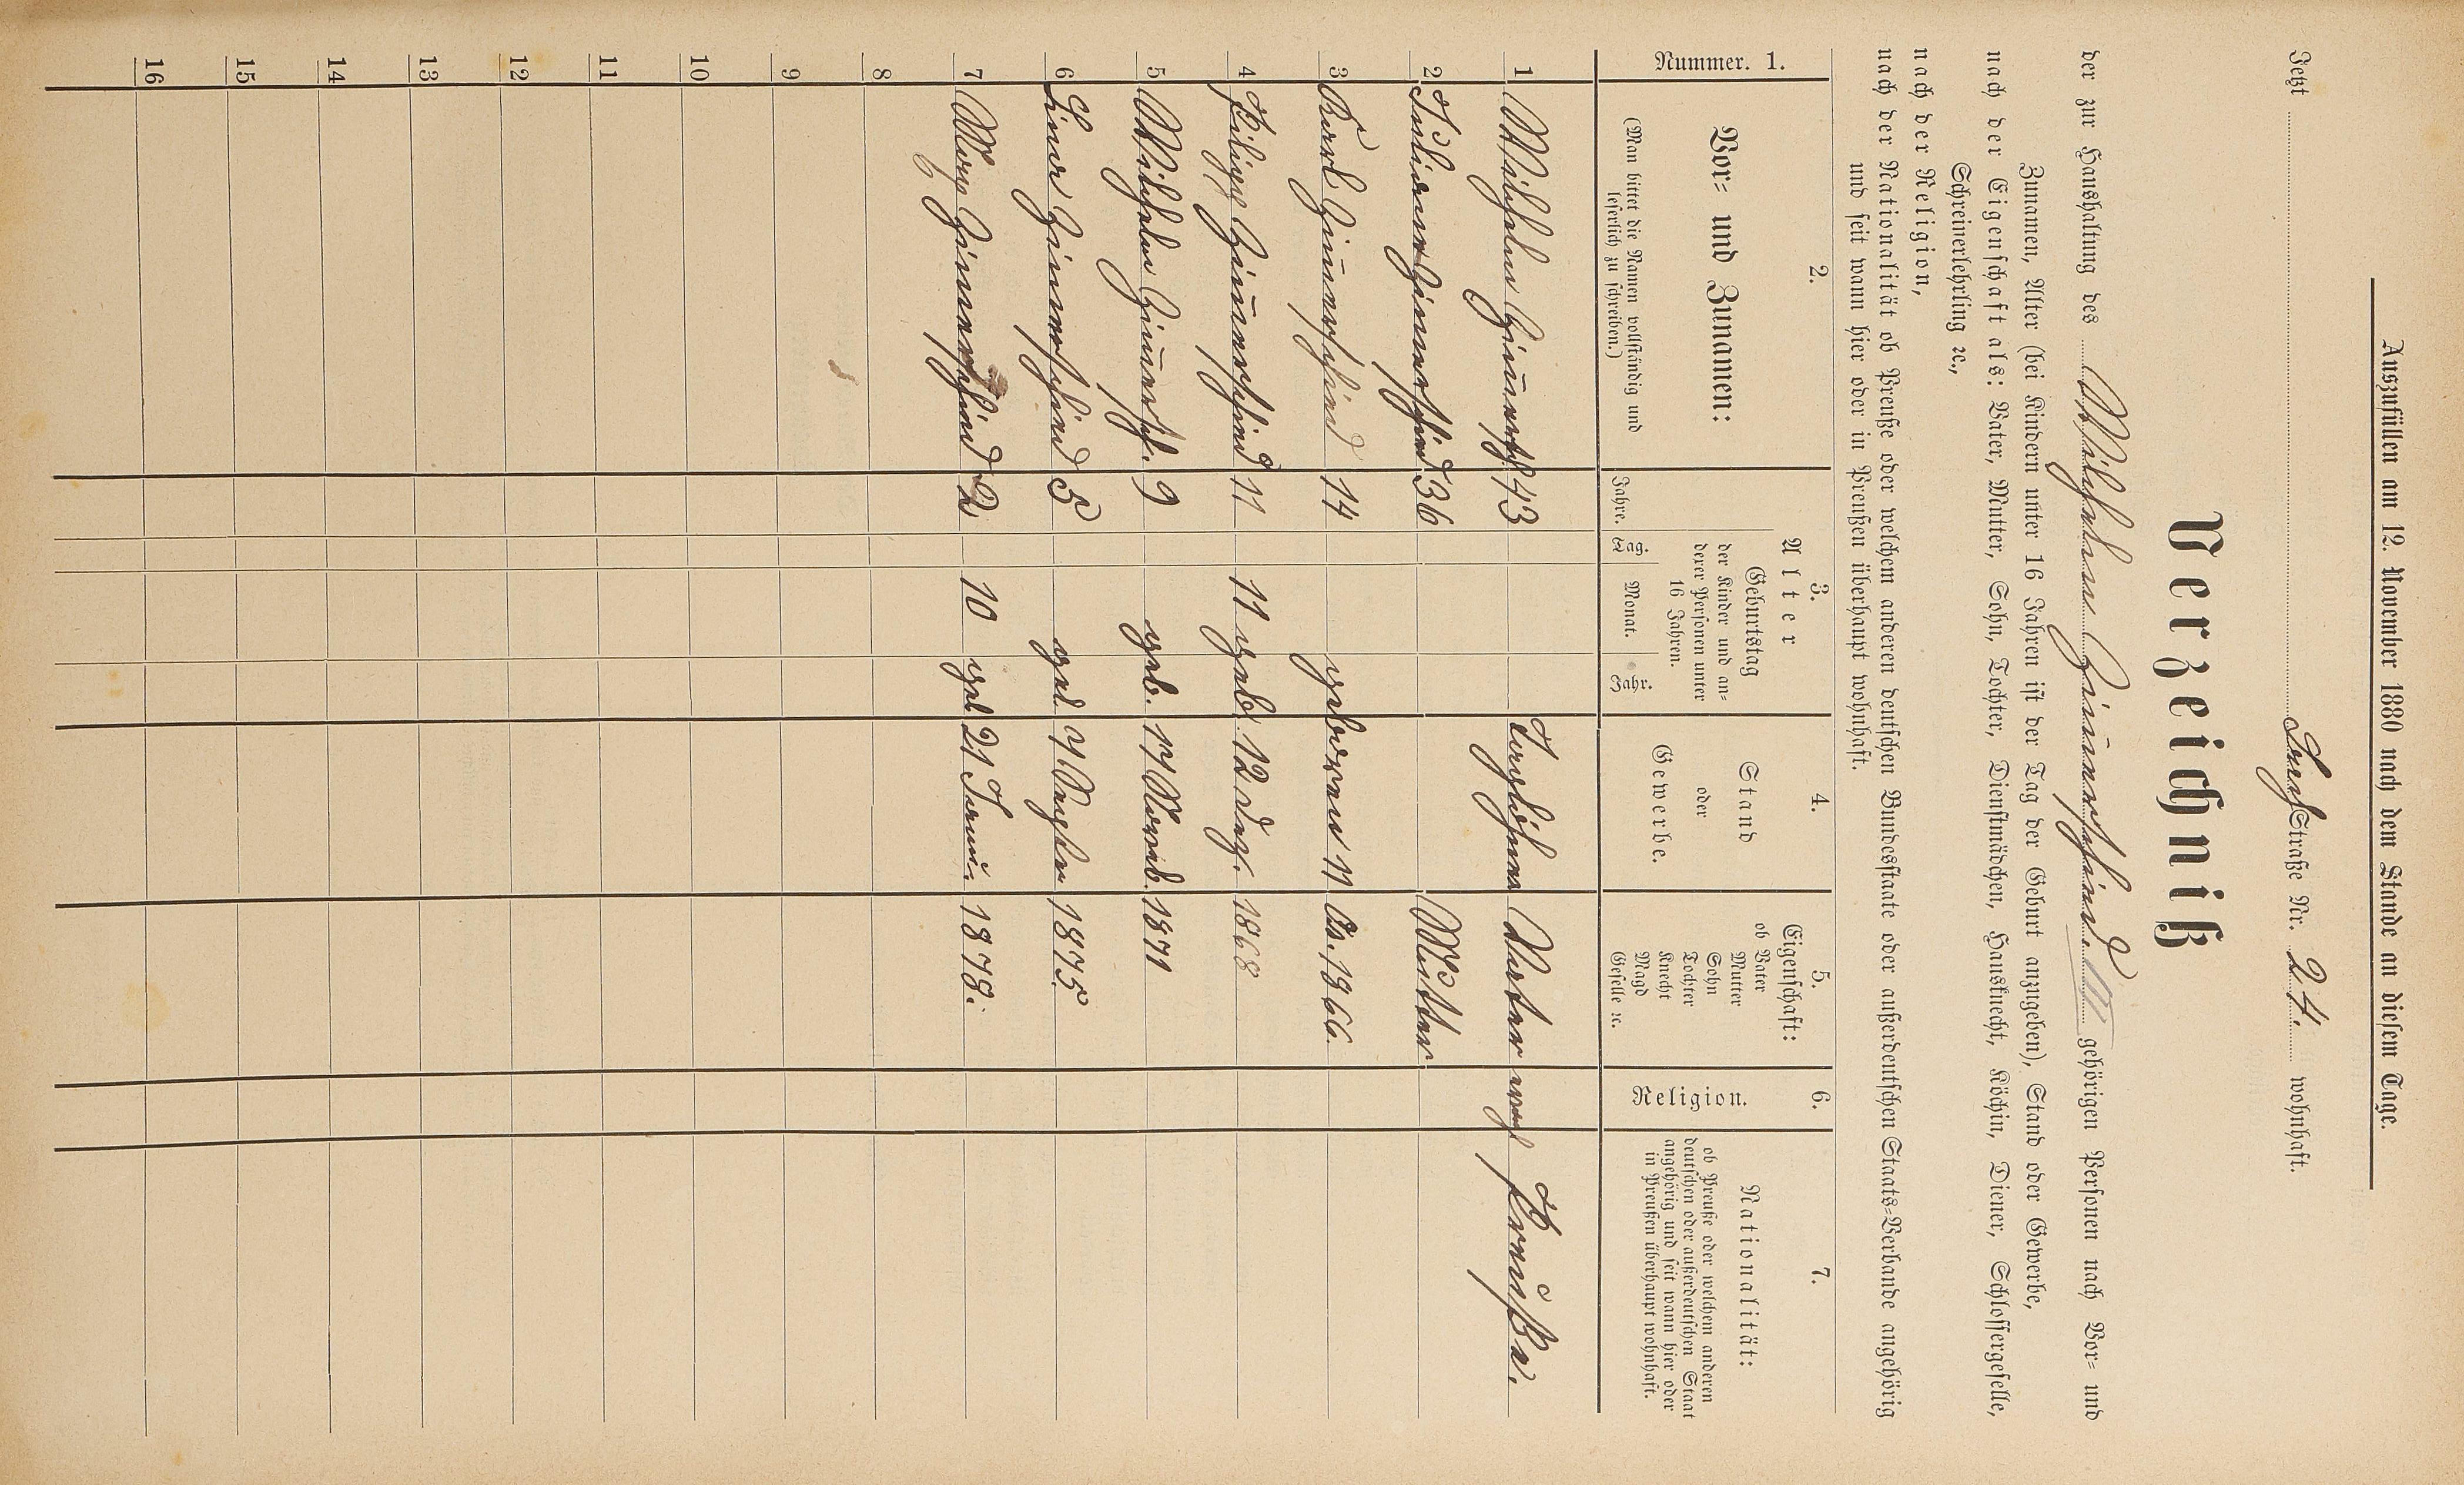 Auszufüllen am 12. November 1880 nach dem Stande an diesem Tage.
Jetzt Straße Nr. 24. wohnhaft.
Verzeichniß
der zur Haushaltung des Wilhelm gehörigen Personen nach Vor- und
Zunamen, Alter (bei Kindern unter 16 Jahren ist der Tag der Geburt anzugeben), Stand oder Gewerbe,
nach der Eigenschaft als: Vater, Mutter, Sohn, Tochter, Dienstmädchen, Hausknecht, Köchin, Diener, Schlossergeselle,
Schreinerlehrling ꝛc.,
nach der Religion,
nach der Nationalität ob Preuße oder welchem anderen deutschen Bundesstaate oder außerdeutschen Staats-Verbande angehörig
und seit wann hier oder in Preußen überhaupt wohnhaft.
Nummer. 1.
2.
Vor- und Zunamen:
(Man bittet die Namen vollständig und
leserlich zu schreiben.)
3.
Alter
Jahre.
Geburtstag
der Kinder und an-
derer Personen unter
16 Jahren.
Tag. Monat. Jahr.
4.
Stand
oder
Gewerbe.
5.
Eigenschaft:
ob Vater
Mutter
Sohn
Tochter
Knecht
Magd
Geselle ꝛc.
6.
Religion.
7.
Nationalität:
ob Preuße oder welchem anderen
deutschen oder außerdeutschen Staat
angehörig und seit wann hier oder
in Preußen überhaupt wohnhaft.
1 Wilhelm 43 Taglöhner Vater evg Preuße.
2 36 Mutter
3 Karl 14 geboren 11 1866.
4 11 11 geb. 12 dez. 1868
5 Wilhelm 9 geb. 17 Novb. 1871
6 5 geb. 1875.
7 2 10 geb 21 Janu. 1878.
8
9
10
11
12
13
14
15
16